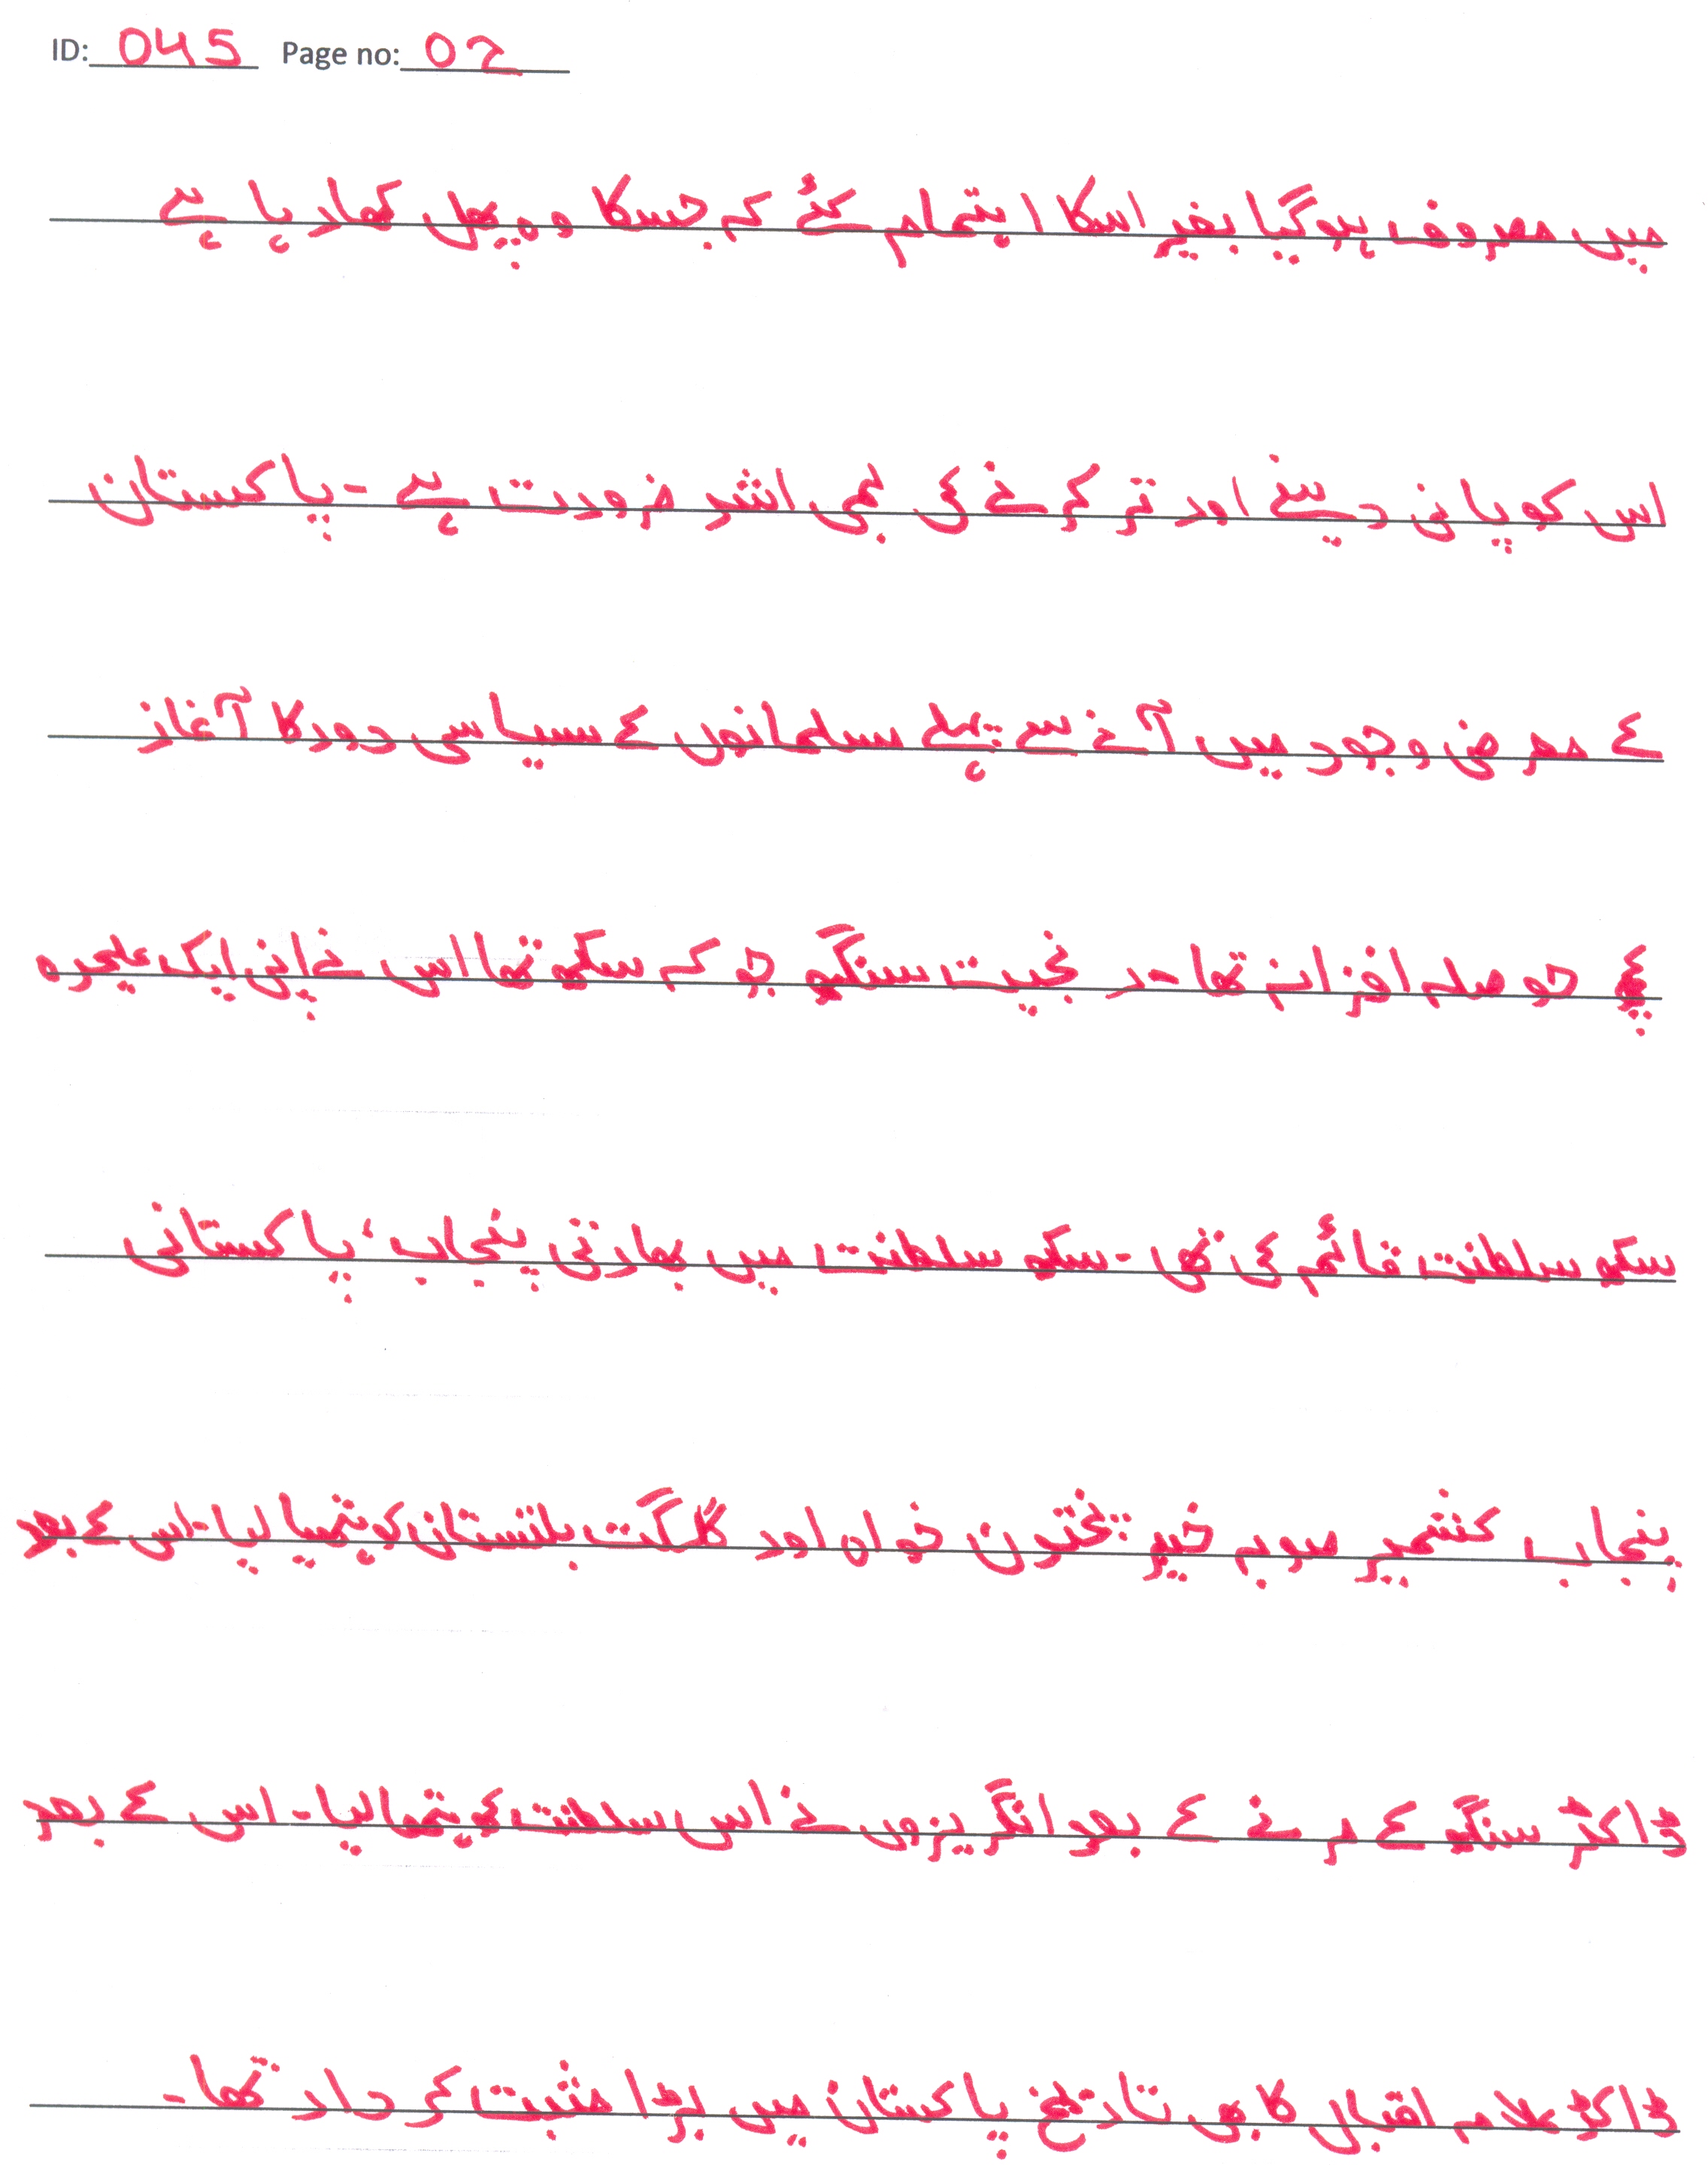 ID: 045 Page no: 02
میں مصروف ہوگیا بغیر اسکا اہتمام کئے کہ جسکا وہ پھل کھا رہا ہے
اس کو پانی دینے اور تر کرنے کی بھی اشد ضرورت ہے - پاکستان
کے معرض وجود میں آنے سے پہلے مسلمانوں کے سیاسی دور کا آغاز
حوصلہ افزا نہ تھا - رنجیت سنگھ جو کہ سکھ تھا اس نے اپنی ایک علیحدہ
سکھ سلطنت قائم کی تھی - سکھ سلطنت میں بھارتی پنجاب، پاکستانی
پنجاب کشمیر صوبہ خیبر پختون خواہ اور گلگت بلتستان کو ہتھیا لیا - اس کے بعد
ڈاکٹر سنگھ کے مرنے کے بعد انگریزوں نے اس سلطنت کو ہتھا لیا - اس کے بعد
ڈاکٹر علامہ اقبال کا بھی تاریخ پاکستان میں بڑا مثبت کردار تھا -